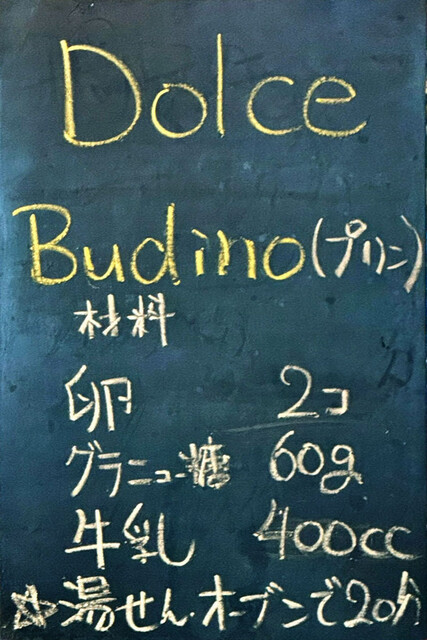 Dolce
Budino(プリン)
材料
卵 2コ
グラニュー糖 60g
牛乳 400cc
☆湯せん.オーブンで20分